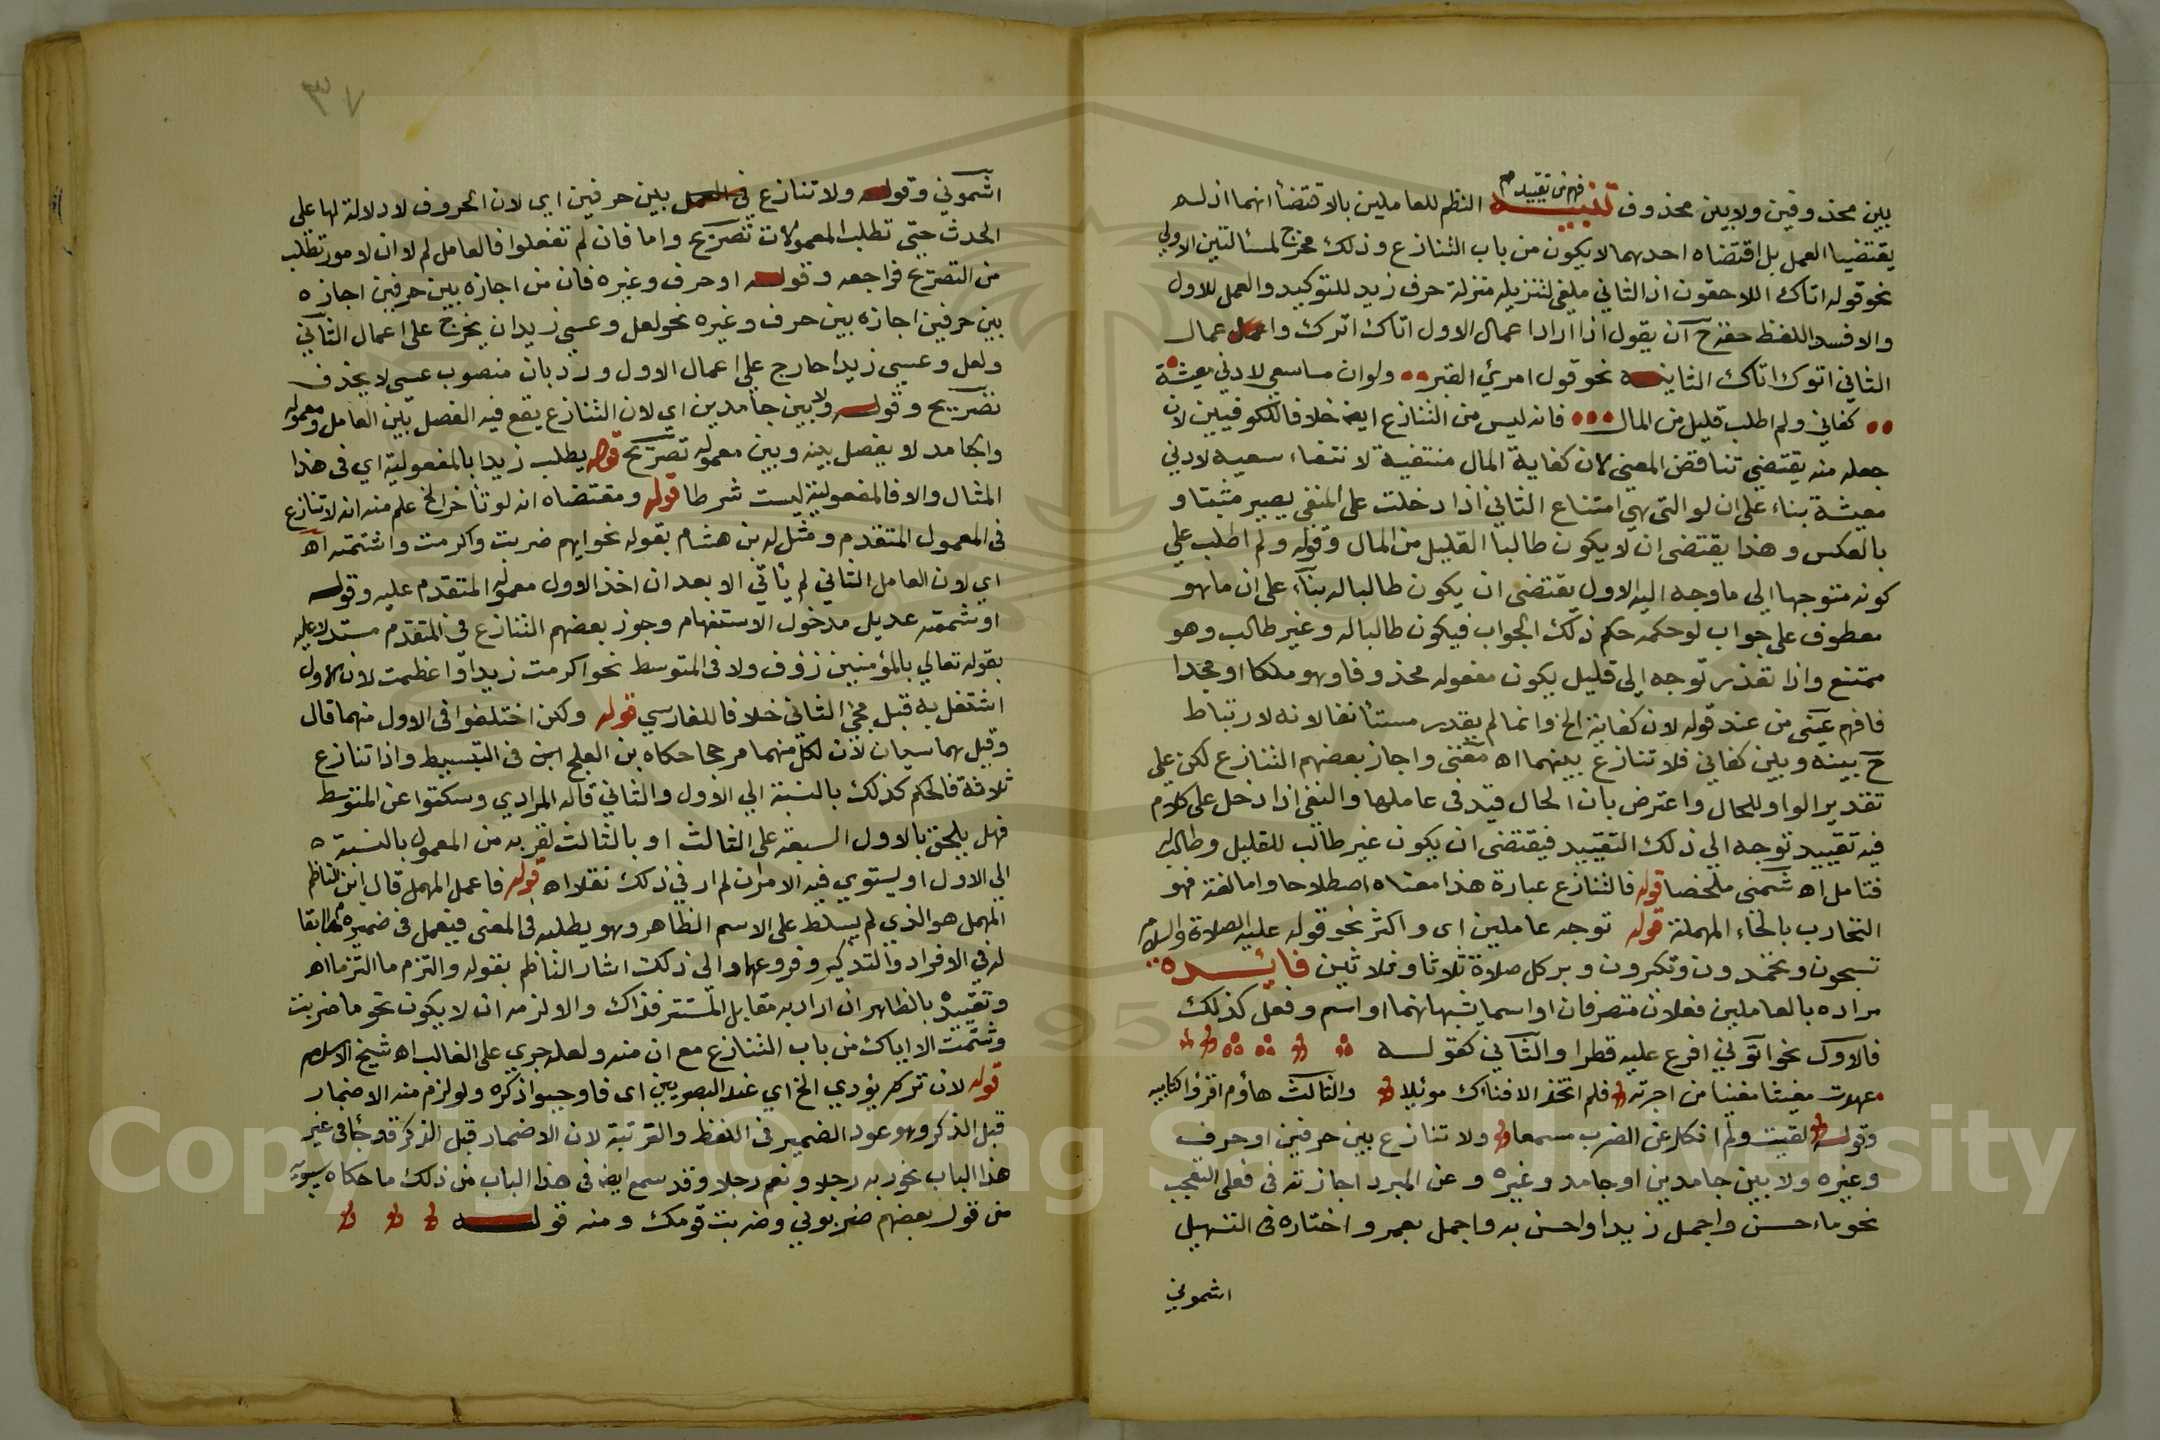 فهم من تقييد م
بين محذوفين ولا بين محذوف تنبيه النظم للعاملين بالاقتضأ انهما اذ له
يقتضيا العمل بل اقتضاه احدهما لا يكون من باب التنازع وذلك مخرج لمسألتين الاولي
نحو قوله اتاك اللاحقون اذ الثاني ملغي لتنزيله منزلة حرف زيد للتوكيد والعمل للاول
والا فسد اللفظ حقه ح ان يقول اذا اراد اعمال الاول اتاك اترك واعمال
الثاني اتوك اتاك الثانيه نحو قول امرئ القيس ولو ان ما سعي لادني معيشة
كفاني ولم اطلب قليل من المال فانه ليس من التنازع ايضا خلافا للكوفيين لان
جعله منه يقتضي تناقض المعني لان كفاية المال منتفية لانتفاء سعيه لادني
معيشة بناء علي ان لو التي هي امتناع الثاني اذا دخلت على المنفى يصير مثبتا و
بالعكس وهذا يقتضى ان لا يكون طالبا القليل من المال وقوله ولم اطلب علي
كونه متوجها الي ما وجه اليه الاول يقتضى ان يكون طالبا له بنآء على ان ما هو
معطوف على جواب لو حكمه حكم ذلك الجواب فيكون طالبا له وغير طالب وهو
ممتنع واذا تعذر توجه الى قليل يكون مفعوله محذوفا وهو ملكا او مجدا
فافهم عيني من عند قوله لان كفاية الخ وانما لم يقدر مستأنفا لانه لا ارتباط
ح بينه وبين كفاني فلا تنازع بينهما اه مغني واجاز بعضهم التنازع لكن على
تقدير الواو للحال واعترض بان الحال قيد في عاملها والنفي اذا دخل على كلام
فيه تقييد توجه الي ذلك التقييد فيقتضى ان يكون غير طالب للقليل وطالب له
فتامل اه شمنى ملخصا قوله فالتنازع عبارة هذا معناه اصطلاحا واما لغة فهو
التجاذب بالخاء المهملة قوله توجه عاملين اى واكثر نحو قوله عليه الصلاة والسلام
تسبحون وتحمدون وتكبرون دبر كل صلاة ثلاثا وثلاثين فائده
مراده بالعاملين فعلان متصرفان او اسما يشبهانهما او اسم وفعل كذلك
فالاول نحو اتوني افرغ عليه قطرا والثاني كقوله
عهدت مغيثا مغنيا من اجرته فلم اتخذ الا فناك موئلا والثالث هاؤم اقرؤا كتابيه
وقوله لقيت ولم انكل عن الضرب مسمعا ولا تنازع بين حرفين او حرف
وغيره ولا بين جامدين او جامد وغيره وعن المبرد اجازته في فعلى التعجب
نحو ما احسن واجمل زيدا واحسن به واجمل بعمرو واختاره في التسهيل
اشموني
٣٧
اشموني وقوله ولا تنازع في العمل بين حرفين اي لان الحروف لا دلالة لها على
الحدث حتي تطلب المعمولات تصريح واما فان لم تفعلوا فالعامل لم لا ان لامور تطلب
من التصريح فراجعه وقوله او حرف وغيره فان من اجازه بين حرفين اجازه
بين حرفين اجازه بين حرف وغيره نحو لعل وعسي زيد ان يخرج على اعمال الثاني
ولعل وعسي زيدا خارج علي اعمال الاول ورد بان منصوب عسى لا يحذف
تصريح وقوله ولا بين جامدين اي لان التنازع يقع فيه الفصل بين العامل ومعموله
والجامد لا يفصل بينه وبين معموله تصريح قوله يطلب زيدا بالمفعولية اي في هذا
المثال والا فالمفعولية ليست شرطا قوله ومقتضاه انه لو تأخر الخ علم منه انه لا تنازع
في المعمول المتقدم ومثل له بن هشام بقوله نحو ايهم ضربت واكرمت واشتمته اه
اي لان العامل الثاني لم يأتي الا بعد ان اخذ الاول معموله المتقدم عليه وقوله
او شتمته عديل مدخول الاستفهام وجوز بعضهم التنازع في المتقدم مستدلا عليه
بقوله تعالي بالمؤمنين رؤف ولا في المتوسط نحو اكرمت زيدا واعظمت لان الاول
اشتغل به قبل مجئ الثاني خلافا للفارسي قوله ولكن اختلفوا في الاول منهما قال
وقيل هما سيان لان لكل منهما مرجحا حكاه بن العلج ابن في البسيط واذا تنازع
ثلاثة فالحكم كذلك بالنسبة الي الاول والثاني قاله المرادي وسكتوا عن المتوسط
فهل يلحق بالاول لسبقه على الثالث او بالثالث لقربه من المعمول بالنسبة
الي الاول او يستوي فيه الامران لم ار في ذلك نقلا اه قوله فاعمل المهمل قال ابن الناظم
المهمل هو الذي لم يسلط على الاسم الظاهر وهو يطلبه في المعنى فيعمل في ضميره مطابقا
له في الافراد والتذكير وفروعهما والى ذلك اشار الناظم بقوله والتزم ما التزما اه
وتقييده بالظاهر ان اراد به مقابل المستتر فذاك والا لزمه ان لا يكون نحو ما ضربت
وشتمت الا اياك من باب التنازع مع ان منه ولعله جري على الغالب اه شيخ الاسلام
قوله لان تركه يؤدي الخ اي عند البصريين اى فاوجبوا ذكره ولو لزم منه الاضمار
قبل الذكر وهو عود الضمير في اللفظ والمرتبة لان الاضمار قبل الذكر قد جأ في غير
هذا الباب نحو ربه رجلا ونعم رجلا وقد سمع ايضا في هذا الباب من ذلك ما حكاه سيبويه
من قول بعضهم ضربوني وضربت قومك ومنه قوله
Copyright © King Saud University